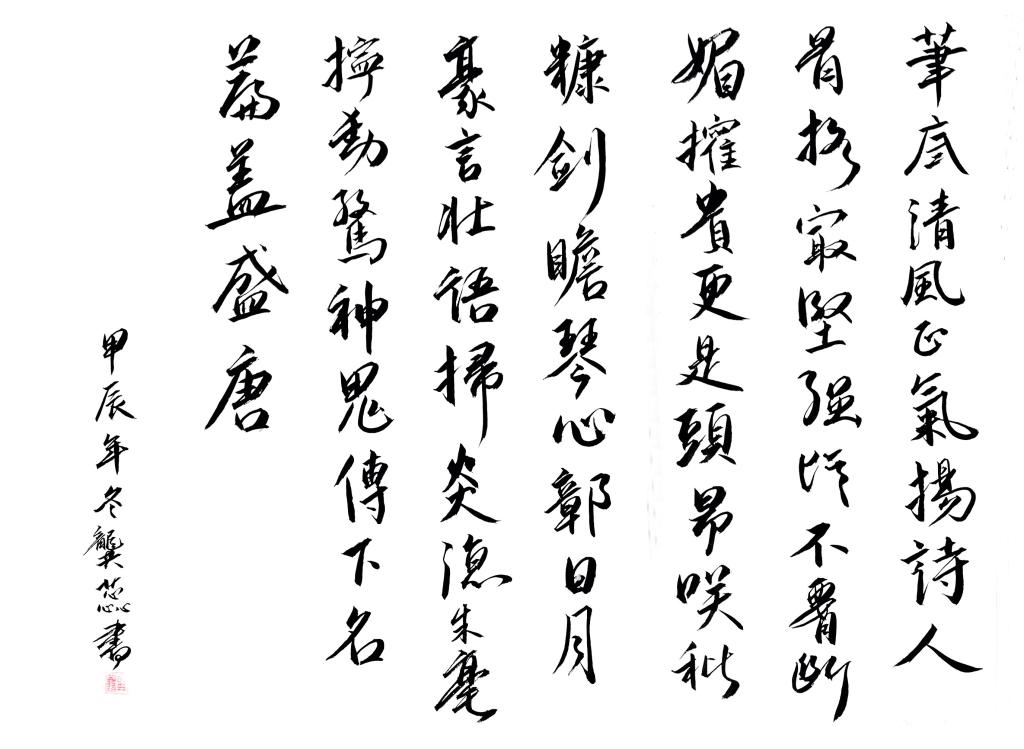 筆底清風正氣揚詩人
骨格㝡堅强從不斷
媚攉貴更是頭昂咲秕
糠劍瞻琴心鄣日月
豪言壯語掃炎朱毫
擰動驚神鬼傳下名
篇蓋盛唐
甲辰年冬龔蕊書